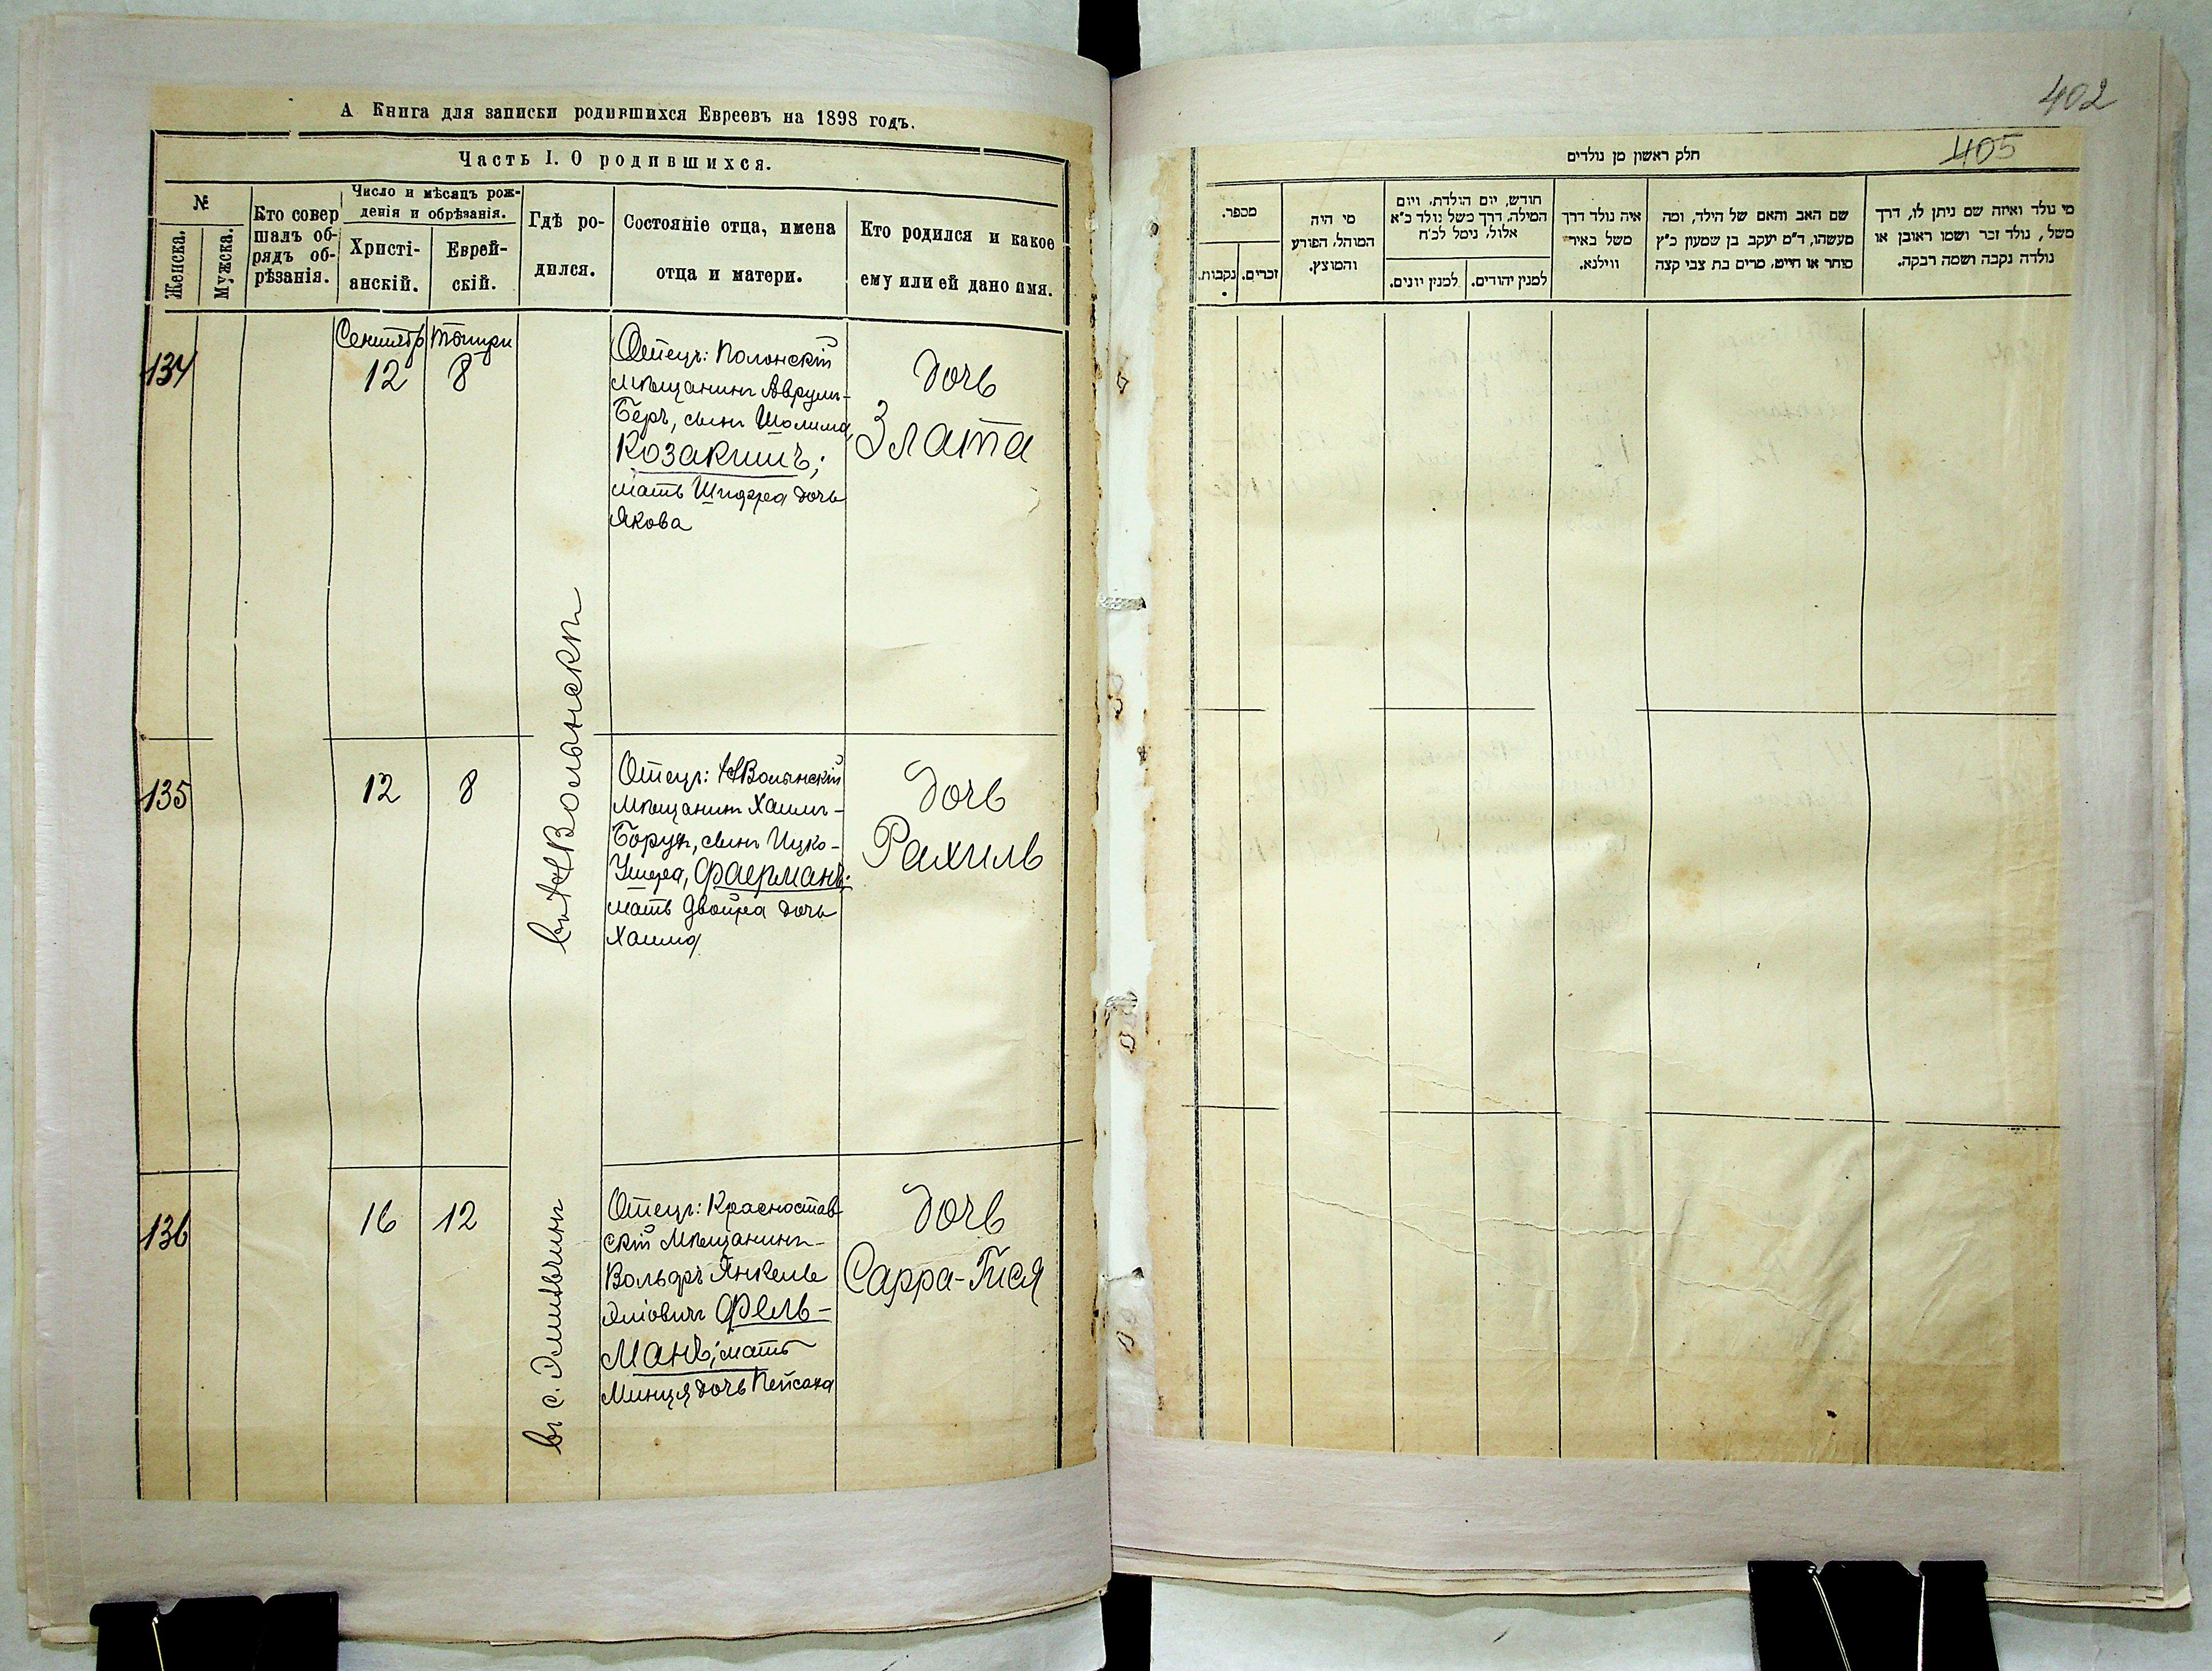 А Книга для записки родившихся Евреевъ на 1898 годъ.
Часть I. О родившихся.
№
Женска.
Мужска.
Кто совер
шалъ об-
рядъ об-
рѣзанія.
Число и мѣсяцъ рож-
денія и обрѣзанія.
Христі-
анскій.
Еврей-
скій.
Гдѣ ро-
дился.
Состояніе отца, имена
отца и матери.
Кто родился и какое
ему или ей дано имя.
134
Сентябр
12
Тишри
8
Отецъ: Полонскій
мѣщанинъ Аврумъ-
Беръ, сынъ Шолима
Козакишъ;
мать Шифра дочь
Якова
дочь
Злата
въ НВолынскѣ
135
12
8
Отецъ: НВолынскій
мѣщанинъ Хаимъ-
Борух, сынъ Ицко-
Фаерманъ;
мать Двойра дочь
Хаима
дочь
Рахиль
136
16
12
въ с.
Отецъ: Красностав-
скій мѣщанинъ
Вольфъ Янкель
Фель-
манъ; мать
Минця дочь Пейсаха
дочь
Сарра-Тися
402
405
חלק ראשון מן נולדים
מספר.
זכרים.
נקבות.
מי היה
המוהל, הפורע
והמוצץ.
חודש, יום הולדת, ויום
המילה, דרך משל נולד כ"א
אלול, נימל לכ"ח
למנין יהודים.
למנין יונים.
איה נולד דרך
משל באיר
ווילנא.
שם האב והאם של הילד, ומה
מעשהו, ד"מ יעקב בן שמעון כ"ץ
סוחר או חייט, מרים בת צבי קצה
מי נולד ואיזה שם ניתן לו, דרך
משל, נולד זכר ושמו ראובן או
נולדה נקבה ושמה רבקה.